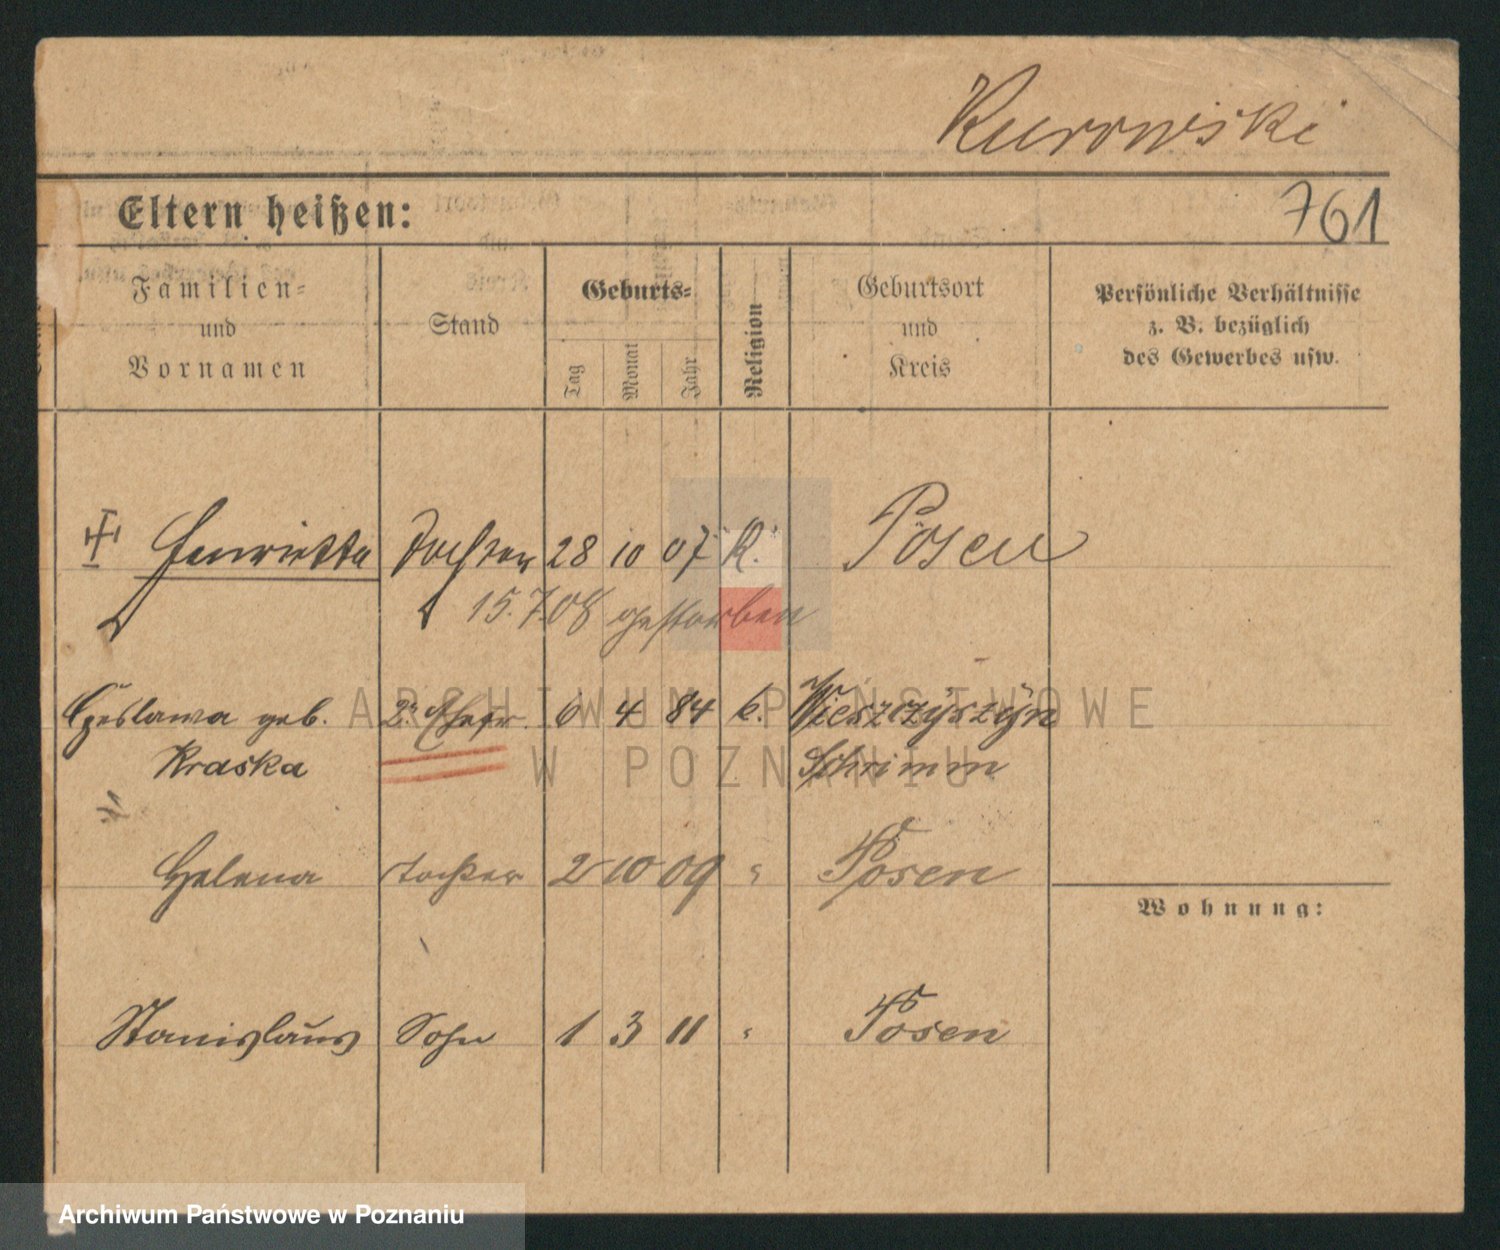 Kurowski
Eltern heißen:
761
Familien-
und
Vornamen
Stand
Geburts-
Tag
Monat
Jahr
Religion
Geburtsort
und
Kreis
Persönliche Verhältnisse
z. B. bezüglich
des Gewerbes usw.
Henrietta Tochter 28 10 07 K. Posen
15.7.08 gestorben
Czeslawa geb. 2. Ehefr. 6 4 84 k.
Kraska Schrimm
Helena Tochter 2 10 09 " Posen
Wohnung:
Stanislaus Sohn 1 3 11 " Posen
ARCHIWUM PAŃSTWOWE
W POZNANIU
Archiwum Państwowe w Poznaniu